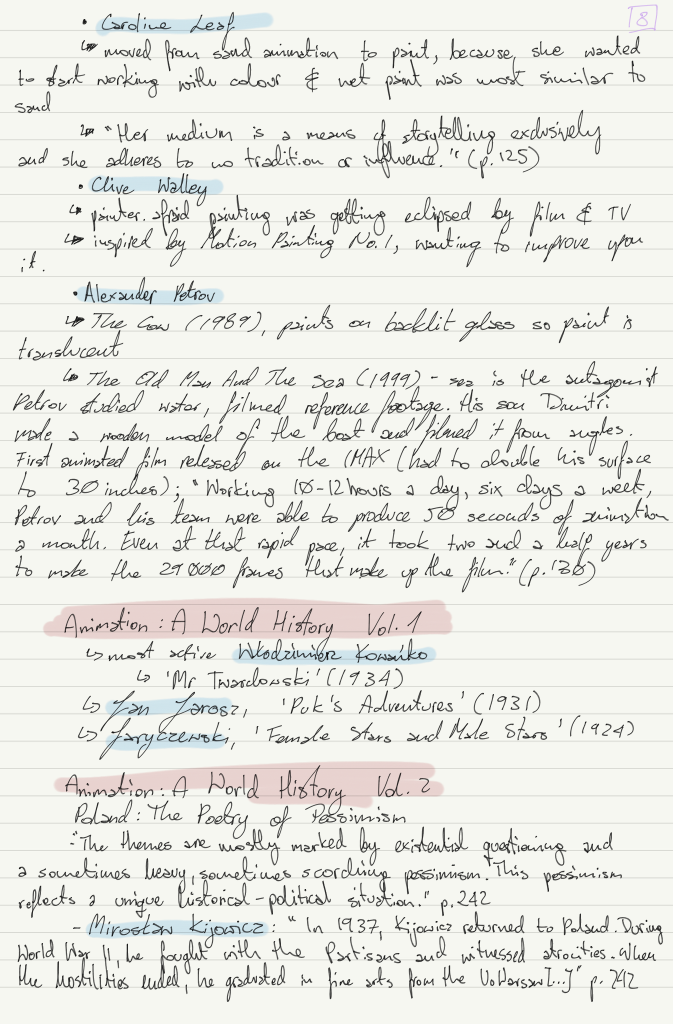 8
• Caroline Leaf
↳ moved from sand animation to paint, because, she wanted
to start working with colour & wet paint was most similar to
sand
↳ "Her medium is a means of storytelling exclusively
and she adheres to no tradition or influence." (p.125)
• Clive Walley
↳ painter. afraid painting was getting eclipsed by film & TV
↳ inspired by Motion Painting No.1, wanting to improve upon
it.
• Alexander Petrov
↳ The Cow (1989), paints on backlit glass so paint is
translucent
↳ The Old Man And The Sea (1999) - sea is the antagonist
Petrov studied water, filmed reference footage. His son Dmitri
made a wooden model of the boat and filmed it from angles.
First animated film released on the IMAX (had to double his surface
to 30 inches); "Working 10-12 hours a day, six days a week,
Petrov and his team were able to produce 50 seconds of animation
a month. Even at that rapid pace, it took two and a half years
to make the 29 000 frames that make up the film." (p.130)
Animation: A World History Vol. 1
↳ most active Włodzimierz Kowańko
↳ 'Mr Twardowski' (1934)
↳ Jan Jarosz, 'Puk's Adventures' (1931)
↳ Jaryczewski, 'Female Stars and Male Stars' (1924)
Animation: A World History Vol. 2
Poland: The Poetry of Pessimism
-"The themes are mostly marked by existential questioning and
a sometimes heavy, sometimes scorching pessimism. This pessimism
reflects a unique historical-political situation." p.242
- Mirosław Kijowicz: "In 1937, Kijowicz returned to Poland. During
World War II, he fought with the Partisans and witnessed atrocities. When
the hostilities ended, he graduated in fine arts from the UoWarsaw[...]" p.242